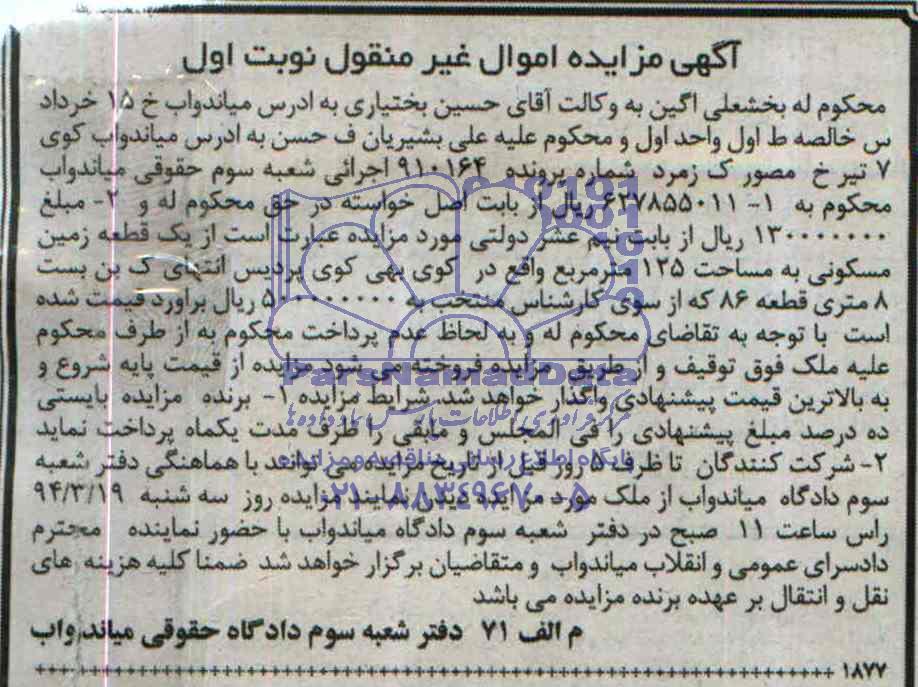 آگهی مزایده اموال غیر منقول نوبت اول
محکوم له بخشعلی اگین به وکالت آقای حسین بختیاری به ادرس میاندواب خ ۱۵ خرداد
س خالصه ط اول واحد اول و محکوم علیه علی بشیریان ف حسن به ادرس میاندواب کوی
۷ تیر خ مصور ک زمرد شماره پرونده ۹۱۰۱۶۴ اجرائی شعبه سوم حقوقی میاندواب
محکوم به ۱- ۶۲۷۸۵۵۰۱۱ ریال از بابت اصل خواسته در حق محکوم له و ۲- مبلغ
۱۳۰۰۰۰۰۰۰ ریال از بابت نیم عشر دولتی مورد مزایده عبارت است از یک قطعه زمین
مسکونی به مساحت ۱۲۵ مترمربع واقع در کوی بهی کوی پردیس انتهای ک بن بست
۸ متری قطعه ۸۶ که از سوی کارشناس منتخب به ۵۰۰۰۰۰۰۰۰۰ ریال براورد قیمت شده
است با توجه به تقاضای محکوم له و به لحاظ عدم پرداخت محکوم به از طرف محکوم
علیه ملک فوق توقیف و از طریق مزایده فروخته می شود مزایده از قیمت پایه شروع و
به بالاترین قیمت پیشنهادی واگذار خواهد شد. شرایط مزایده ۱- برنده مزایده بایستی
ده درصد مبلغ پیشنهادی را فی المجلس و مابقی را ظرف مدت یکماه پرداخت نماید
۲- شرکت کنندگان تا ظرف ۵ روز قبل از تاریخ مزایده می توانند با هماهنگی دفتر شعبه
سوم دادگاه میاندواب از ملک مورد مزایده دیدن نمایند مزایده روز سه شنبه ۹۴/۳/۱۹
راس ساعت ۱۱ صبح در دفتر شعبه سوم دادگاه میاندواب با حضور نماینده محترم
دادسرای عمومی و انقلاب میاندواب و متقاضیان برگزار خواهد شد ضمنا کلیه هزینه های
نقل و انتقال بر عهده برنده مزایده می باشد
م الف ۷۱ دفتر شعبه سوم دادگاه حقوقی میاندواب
۱۸۷۷
ParsNamadData
مرکز فرآوری اطلاعات پارس نماد داده ها
پایگاه اطلاع رسانی مناقصه و مزایده
۰۲۱-۸۸۳۴۹۶۷۰-۵